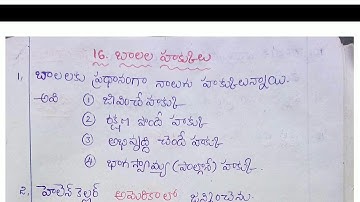 16. బాలల హక్కులు
1. బాలలకు ప్రధానంగా నాలుగు హక్కులున్నాయి.
అవి ① జీవించే హక్కు
② రక్షణ పొందే హక్కు
③ అభివృద్ధి చెందే హక్కు
④ భాగస్వామ్య (పాల్గొనే) హక్కు.
2. హెలెన్ కెల్లర్ అమెరికాలో జన్మించెను.